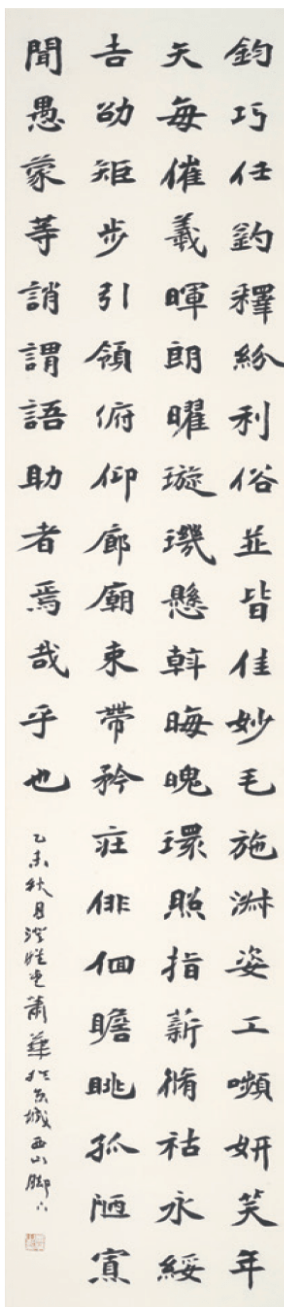 鈞巧任釣釋紛利俗並皆佳妙毛施淑姿工嚬妍笑年
矢每催羲暉朗曜璇璣懸斡晦魄環照指薪脩祜永綏
吉劭矩步引領俯仰廊廟束帶矜莊俳佪瞻眺孤陋寡
聞愚蒙等誚謂語助者焉哉乎也
乙未秋月蕭華於京城西山腳下